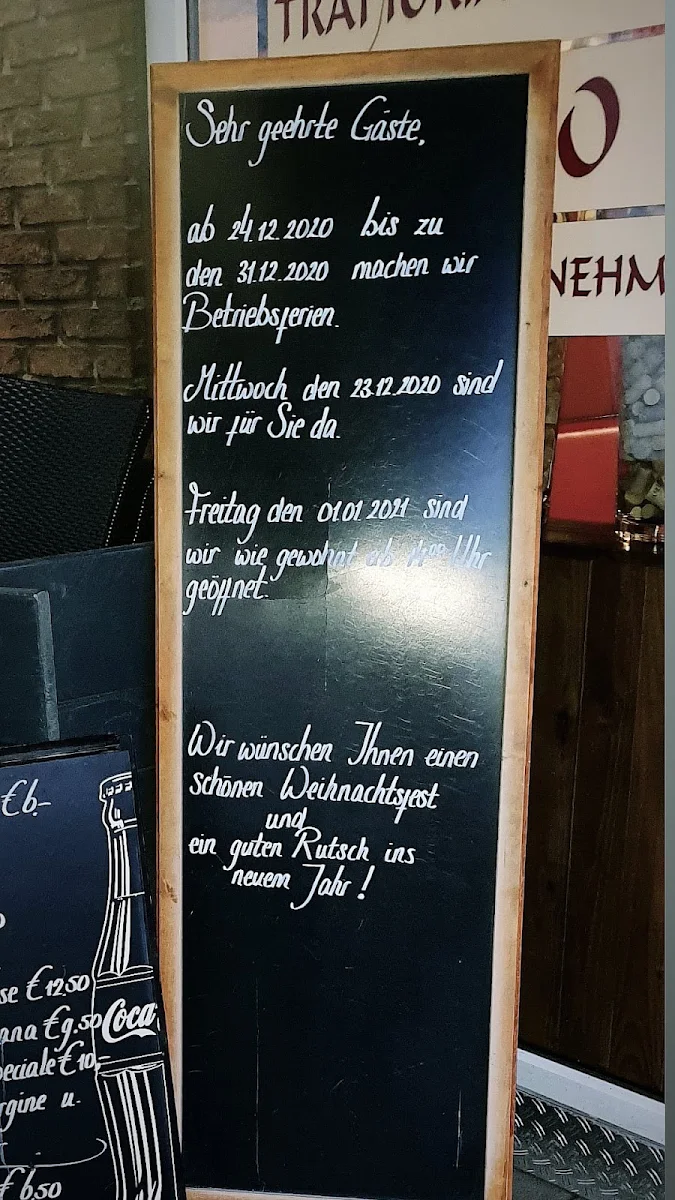 TRATTORIA
O
NEHM
Sehr geehrte Gäste,
ab 24.12.2020 bis zu
den 31.12.2020 machen wir
Betriebsferien.
Mittwoch den 23.12.2020 sind
wir für Sie da.
Freitag den 01.01.2021 sind
wir wie gewohnt ab Uhr
geöffnet.
Wir wünschen Ihnen einen
schönen Weihnachtsfest
und
ein guten Rutsch ins
neuem Jahr!
€6,-
se €12.50
ana €9.50
peciale €10,-
rgine u.
€6.50
Coca